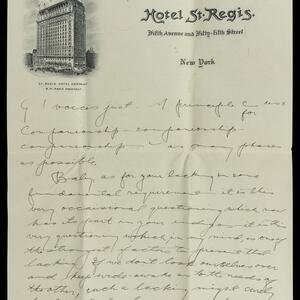 Hotel St. Regis.
Fifth Avenue and Fifty-fifth Street
New York
ST. REGIS HOTEL COMPANY
R.M. HAAN PRESIDENT
voices just. A principle
for
Companionship - companionship -
companionship - as many phases
as possible.
Baby, as for your lacking in some
fundamental requirement it is this
very occasional questioning which now
has its part in your and it is this
very questioning which in my mind, is one of
the strongest factors to prevent that
lacking. If we don't look ourselves over
and keep wide-awake as to the needs of
the other, such a lacking might easily